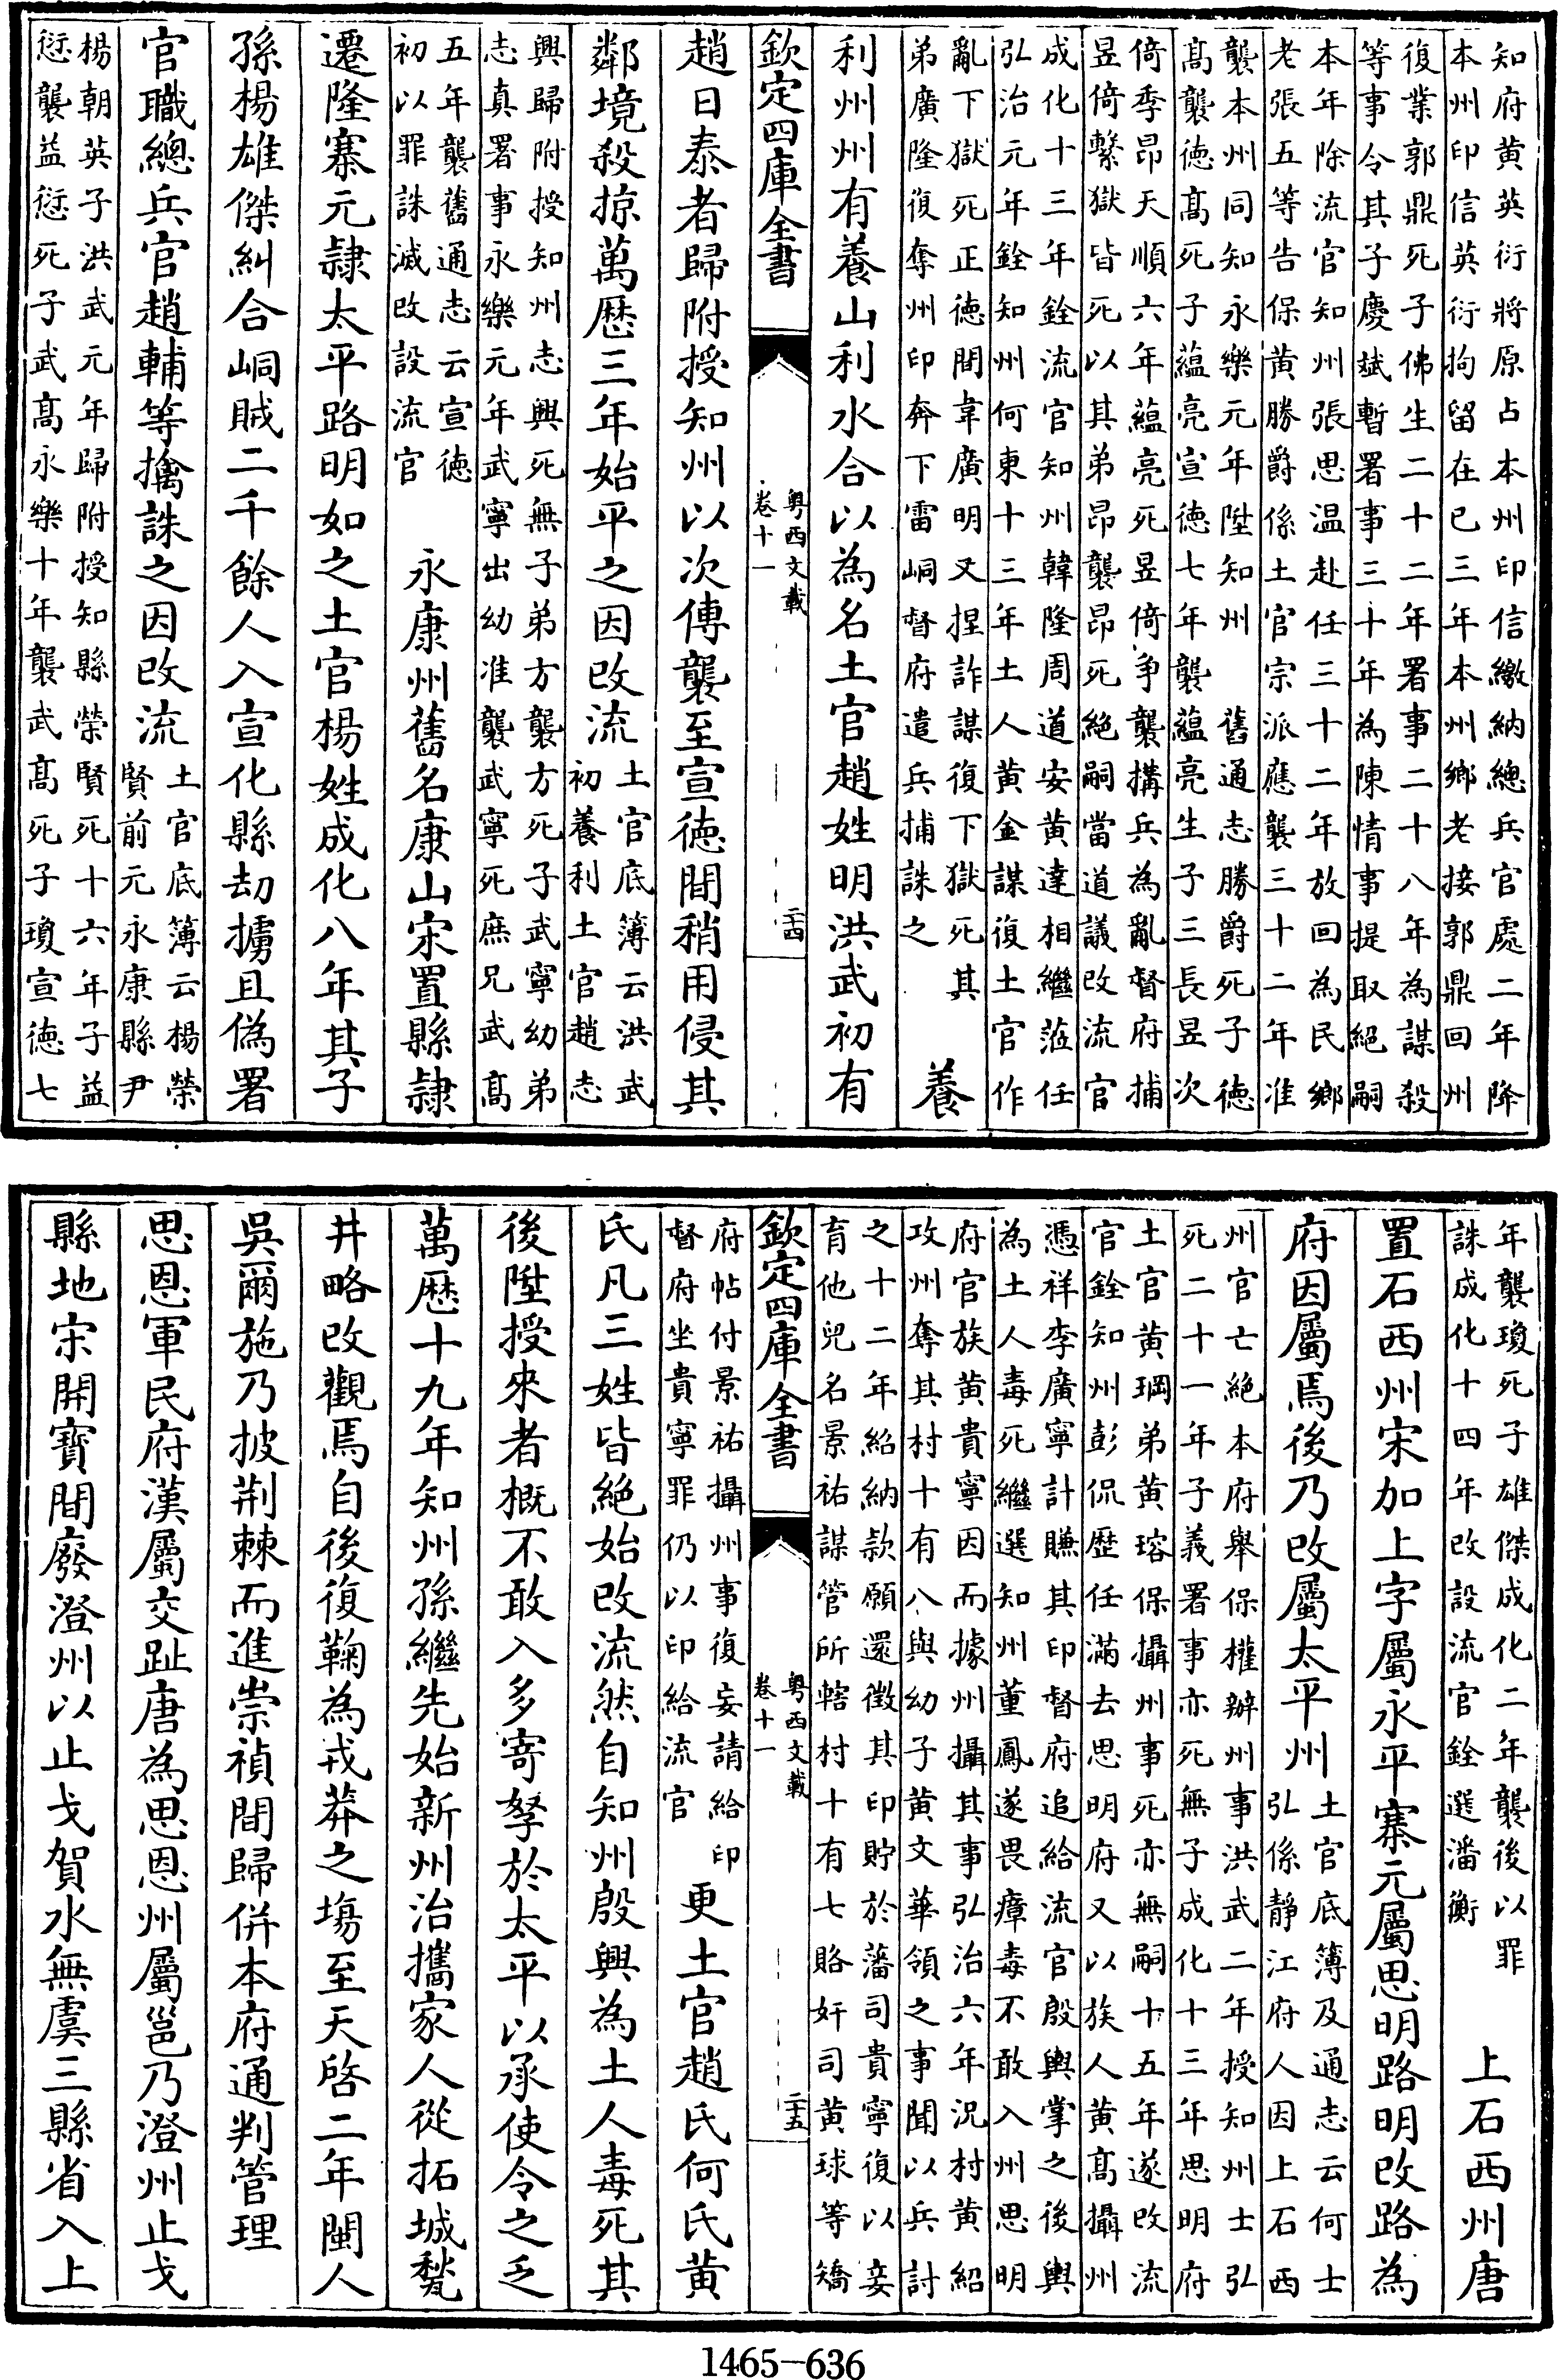 知府黄英衍將原占本州印信繳納總兵官處二年降
本州印信英衍拘留在已三年本州鄉老接郭鼎回州
復業郭鼎死子佛生二十二年署事二十八年為謀殺
等事令其子慶斌暫署事三十年為陳情事提取絶嗣
本年除流官知州張思温赴任三十二年放回為民鄉
老張五等告保黄勝爵係土官宗派應襲三十二年准
襲本州同知永樂元年陞知州　舊通志勝爵死子徳
髙襲徳髙死子藴亮宣徳七年襲藴亮生子三長昱次
倚季昂天順六年藴亮死昱倚爭襲搆兵為亂督府捕
昱倚繫獄皆死以其弟昂襲昂死絶嗣當道議改流官
成化十三年銓流官知州韓隆周道安黄達相繼蒞任
弘治元年銓知州何東十三年土人黄金謀復土官作
亂下獄死正徳間韋廣明又捏詐謀復下獄死其
弟廣隆復奪州印奔下雷峒督府遣兵捕誅之
養
利州州有養山利水合以為名土官趙姓明洪武初有
欽定四庫全書
粤西文載
卷十一
二十四
趙日泰者歸附授知州以次傳襲至宣徳間稍用侵其
鄰境殺掠萬厯三年始平之因改流
土官底簿云洪武
初養利土官趙志
興歸附授知州志興死無子弟方襲方死子武寧幼弟
志真署事永樂元年武寧出幼准襲武寧死庶兄武髙
五年襲舊通志云宣徳
初以罪誅滅改設流官
永康州舊名康山宋置縣隷
遷隆寨元隷太平路明如之土官楊姓成化八年其子
孫楊雄傑糾合峒賊二千餘人入宣化縣刦擄且偽署
官職總兵官趙輔等擒誅之因改流
土官底簿云楊榮
賢前元永康縣尹
楊朝英子洪武元年歸附授知縣榮賢死十六年子益
愆襲益愆死子武髙永樂十年襲武髙死子瓊宣徳七
年襲瓊死子雄傑成化二年襲後以罪
誅成化十四年改設流官銓選潘衡
上石西州唐
置石西州宋加上字屬永平寨元屬思明路明改路為
府因屬焉後乃改屬太平州
土官底簿及通志云何士
弘係静江府人因上石西
州官亡絶本府舉保權辦州事洪武二年授知州士弘
死二十一年子義署事亦死無子成化十三年思明府
土官黄𤨏弟黄瑢保攝州事死亦無嗣十五年遂改流
官銓知州彭侃歴任滿去思明府又以族人黄髙攝州
憑祥李廣寧計賺其印督府追給流官殷輿掌之後輿
為土人毒死繼選知州董鳳遂畏瘴毒不敢入州思明
府官族黄貴寧因而據州攝其事弘治六年況村黄紹
攻州奪其村十有八與幼子黄文華領之事聞以兵討
之十二年紹納款願還徴其印貯於藩司貴寧復以妾
育他兒名景祐謀管所轄村十有七賂奸司黄球等矯
欽定四庫全書
粤西文載
卷十一
二十五
府帖付景祐攝州事復妄請給印
督府坐貴寧罪仍以印給流官
更土官趙氏何氏黄
氏凡三姓皆絶始改流然自知州殷興為土人毒死其
後陞授來者概不敢入多寄孥於太平以承使令之乏
萬厯十九年知州孫繼先始新州治攜家人從拓城甃
井略改觀焉自後復鞠為戎莽之塲至天啓二年閩人
吳爾施乃披荆棘而進崇禎間歸併本府通判管理
思恩軍民府漢屬交趾唐為思恩州屬邕乃澄州止戈
縣地宋開寳間廢澄州以止戈賀水無虞三縣省入上
1465-636